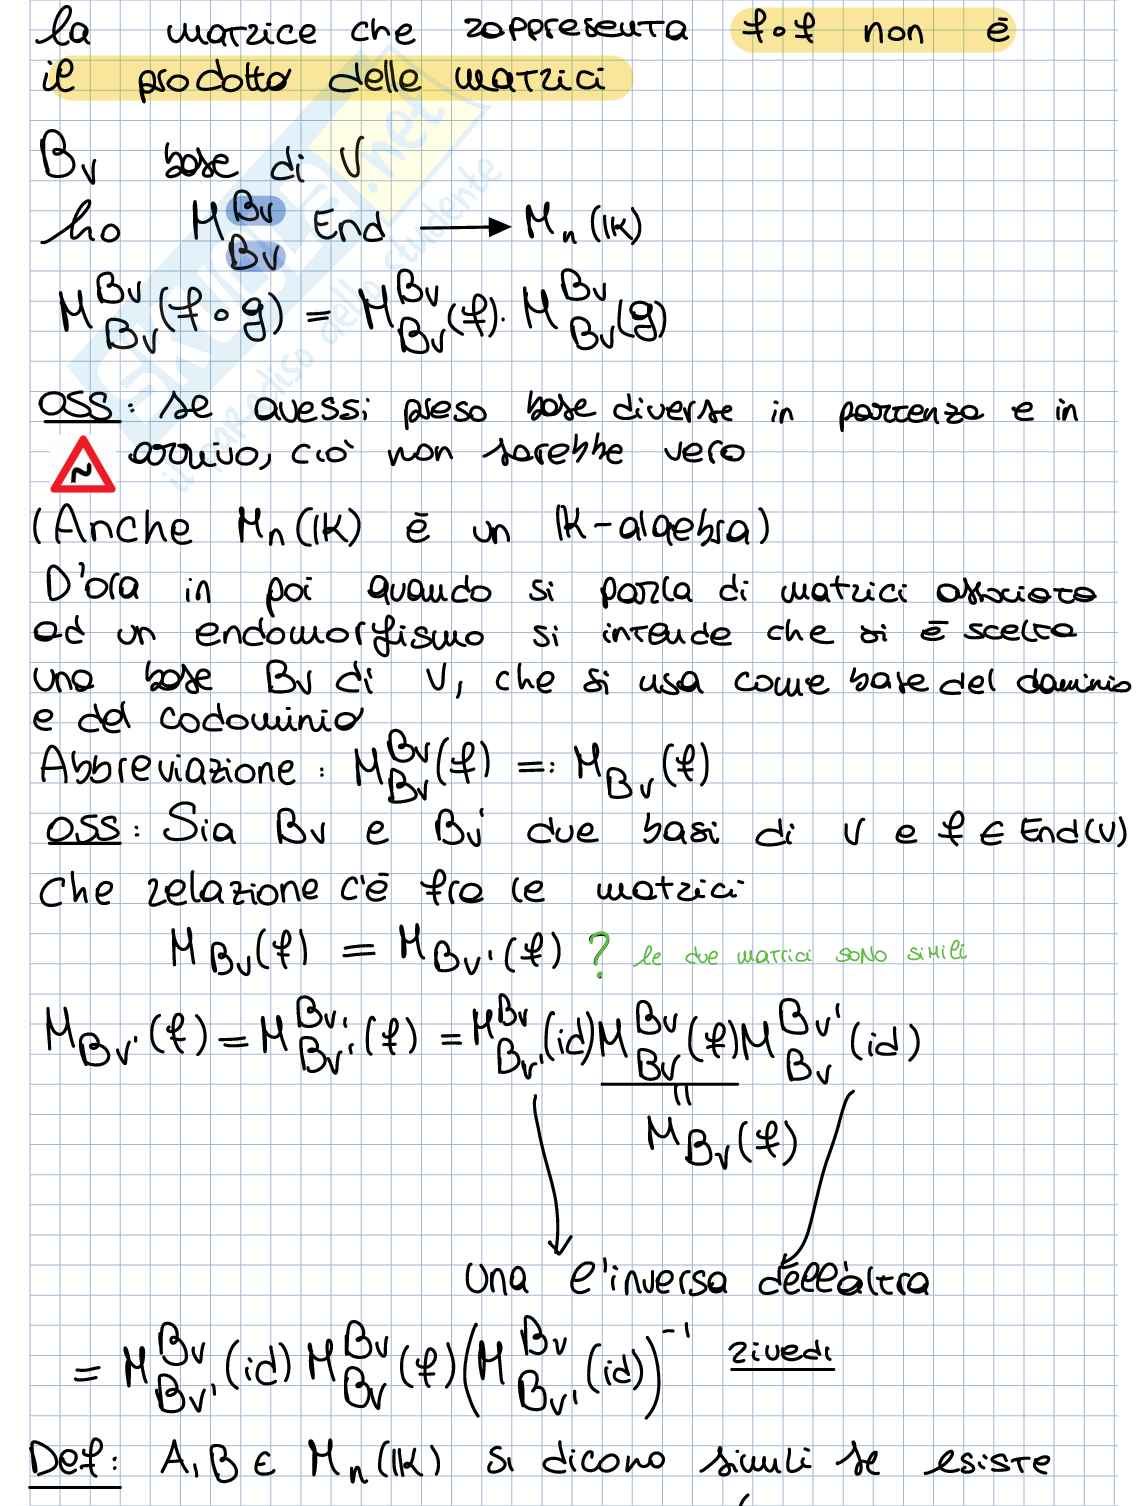 la matrice che rappresenta f∘f non è
il prodotto delle matrici
B_V base di V
ho M^{B_V}_{B_V} End → M_n(K)
M^{B_V}_{B_V}(f∘g) = M^{B_V}_{B_V}(f)· M^{B_V}_{B_V}(g)
OSS: se avessi preso base diverse in partenza e in
arrivo, ciò non sarebbe vero
(Anche M_n(K) è un K-algebra)
D'ora in poi quando si parla di matrici associate
ad un endomorfismo si intende che si è scelta
una base B_V di V, che si usa come base del dominio
e del codominio
Abbreviazione: M^{B_V}_{B_V}(f) =: M_{B_V}(f)
OSS: Sia B_V e B_V' due basi di V e f ∈ End(V)
Che relazione c'è fra le matrici
M_{B_V}(f) = M_{B_V'}(f) ? le due matrici sono simili
M_{B_V'}(f) = M^{B_V'}_{B_V'}(f) = M^{B_V}_{B_V'}(id) M^{B_V}_{B_V}(f) M^{B_V'}_{B_V}(id)
M_{B_V}(f)
una l'inversa dell'altra
= M^{B_V}_{B_V'}(id) M^{B_V}_{B_V}(f) (M^{B_V}_{B_V'}(id))^{-1} rivedi
Def: A, B ∈ M_n(K) si dicono simili se esiste
SKUOLA.net
il paradiso dello studente